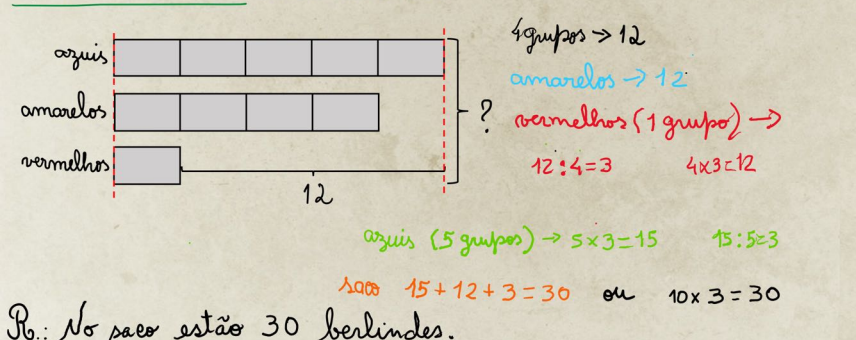 azuis
amarelos
vermelhos
12
?
4 grupos → 12
amarelos → 12
vermelhos (1 grupo) →
12 : 4 = 3 4 x 3 = 12
azuis (5 grupos) → 5 x 3 = 15 15 : 5 = 3
saco 15 + 12 + 3 = 30 ou 10 x 3 = 30
R.: No saco estão 30 berlindes.